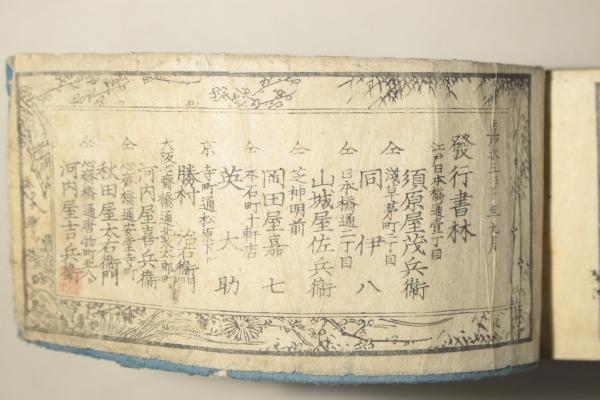 發行書林
江戸日本橋通壹丁目
須原屋茂兵衞
仝 淺草茅町二丁目
同 伊八
仝 日本橋通二丁目
山城屋佐兵衞
仝 芝神明前
岡田屋嘉七
仝 本石町十軒店
英大助
京 寺町通松原下ル
勝村治右衞門
大阪心齋橋通北久太郎町
河内屋喜兵衞
仝 心齋橋通安堂寺町
秋田屋太右衞門
仝 心齋橋通唐物町
河内屋吉兵衞